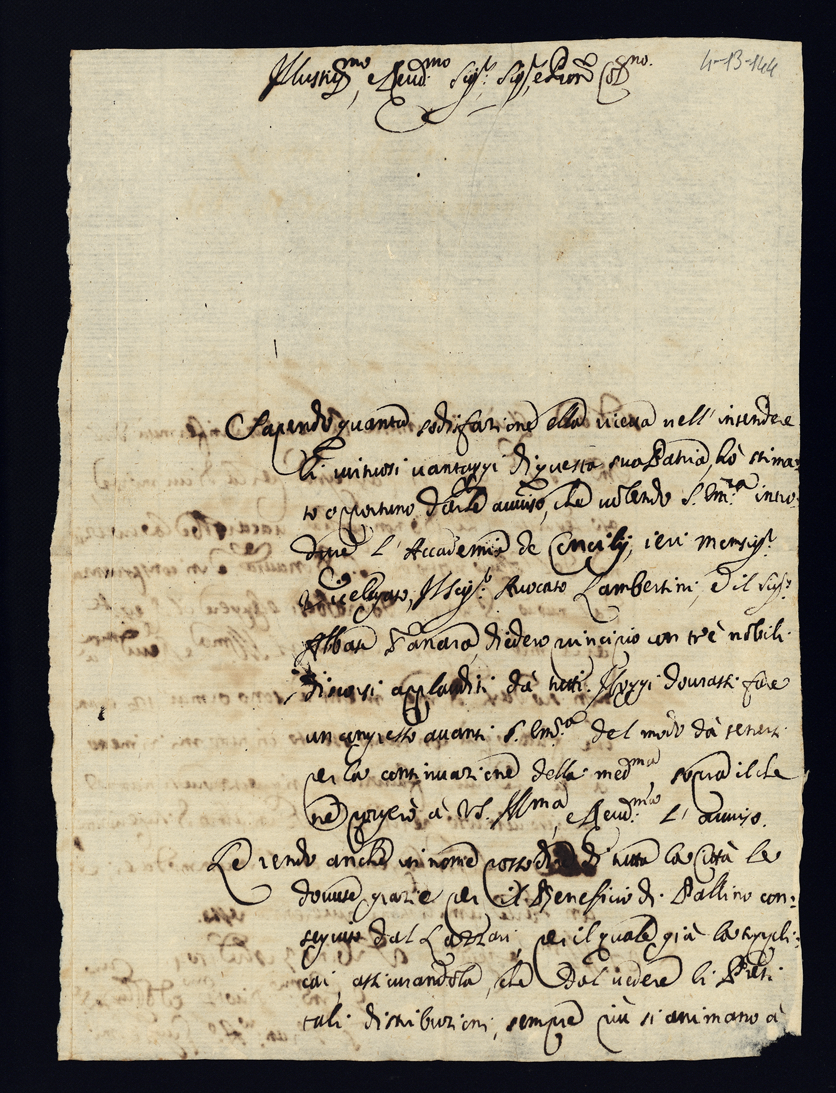 4-13-144
Illustr.mo, e Reud.mo Sig.r Sig.r, e Pron Col.mo
Sapendo quanta sodisfazione ella riceva nell' intendere
li virtuosi vantaggi di questa sua Patria, hò stima-
to opportuno darle auuiso, che uolendo S. Em.za intro-
durre l'Accademia de Concilij, ieri Monsig.r
Vicelegato, Il Sig.r Auocato Lambertini, e il Sig.r
Abbate Tanara, diedero principio con trè nobili
discorsi applauditi dà tutti. Oggi dourassi fare
un congresso auanti S. Em.za del modo dà tenersi
per la continuazione della med.ma, sopra il che
ne porgerò à VS. Ill.ma, e Reud.ma l' auuiso.
Le rendo anche in nome posso dire di tutta la Città le
douute grazie per il Beneficio di Pallino con-
seguito dal Lazzari, per il quale già la suppli-
cai, assicurandola, che dal uedere li Preti
tali distribuzioni, sempre più si animano à